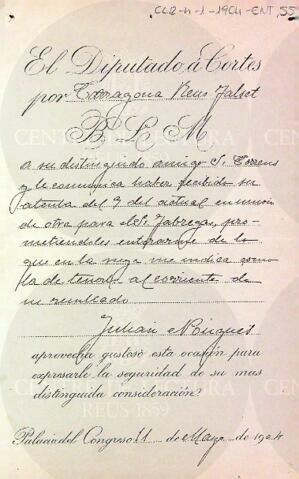 CL2-h-1-1904-ENT, 55
El Diputado á Cortes
por Tarragona Reus Falset
B. L. M.
a su distinguido amigo Sr.
y le comunica haber recibido su
atenta del 9 del actual en union
de otra para el Sr. Fabregas, pro-
metiendoles enterarme de lo
que en la suya me indica como
la de tenerle al corriente de
su resultado
Julian Nougues
aprovecha gustoso esta ocasión para
expresarle la seguridad de su mas
distinguida consideración.
Palacio del Congreso 11 de Mayo de 1904
CENTRE DE LECTURA
REUS 1859